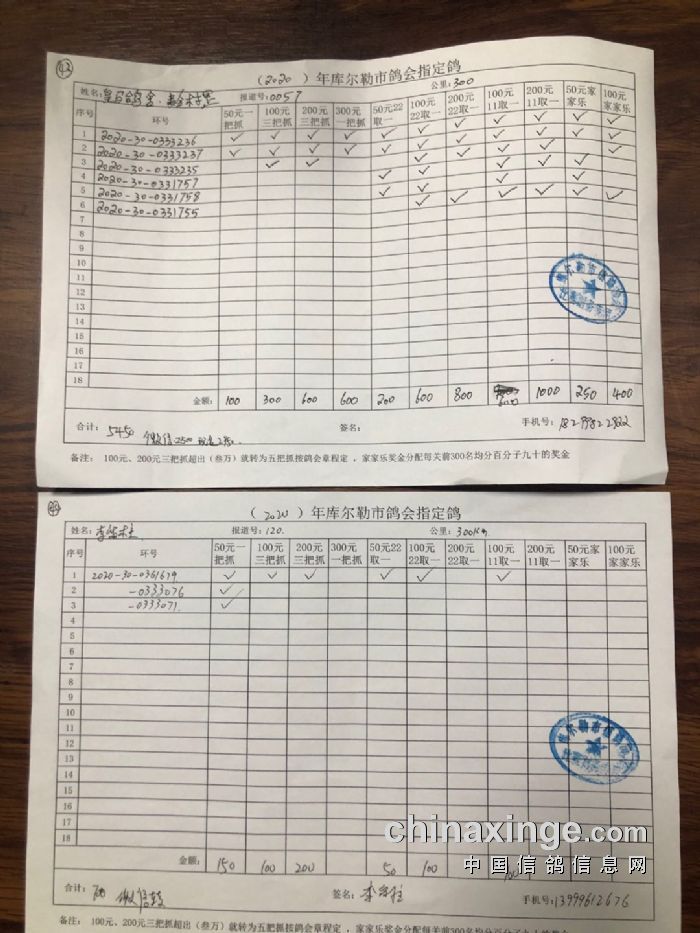 43
（2020）年库尔勒市鸽会指定鸽
姓名: 报道号:0057 公里:300
序号 环号 50元一把抓 100元三把抓 200元三把抓 300元一把抓 50元22取一 100元22取一 200元22取一 100元11取一 200元11取一 50元家家乐 100元家家乐
1 2020-30-0333236 ✓ ✓ ✓ ✓ ✓ ✓ ✓ ✓ ✓ ✓ ✓
2 2020-30-0333237 ✓ ✓ ✓ ✓ ✓ ✓ ✓ ✓ ✓ ✓ ✓
3 2020-30-0333235 ✓ ✓ ✓ ✓ ✓ ✓
4 2020-30-0331757 ✓ ✓ ✓ ✓
5 2020-30-0331758 ✓ ✓ ✓ ✓ ✓ ✓
6 2020-30-0331755 ✓ ✓ ✓ ✓ ✓
7
8
9
10
11
12
13
14
15
16
17
18
金额: 100 300 600 600 200 600 800 600 1000 250 400
合计: 5450 签名: 手机号:
备注: 100元、200元三把抓超出（叁万）就转为五把抓按鸽会章程定，家家乐奖金分配每关前300名均分百分子九十的奖金
（2020）年库尔勒市鸽会指定鸽
姓名: 报道号:120. 公里:300KM
序号 环号 50元一把抓 100元三把抓 200元三把抓 300元一把抓 50元22取一 100元22取一 200元22取一 100元11取一 200元11取一 50元家家乐 100元家家乐
1 2020-30-0361679 ✓ ✓ ✓ ✓ ✓ ✓
2 -0333076 ✓
3 -0333071 ✓
4
5
6
7
8
9
10
11
12
13
14
15
16
17
18
金额: 150 100 200 50 100 100
合计: 700 签名: 手机号:13999612676
备注: 100元、200元三把抓超出（叁万）就转为五把抓按鸽会章程定，家家乐奖金分配每关前300名均分百分子九十的奖金
chinaxinge.com
中国信鸽信息网